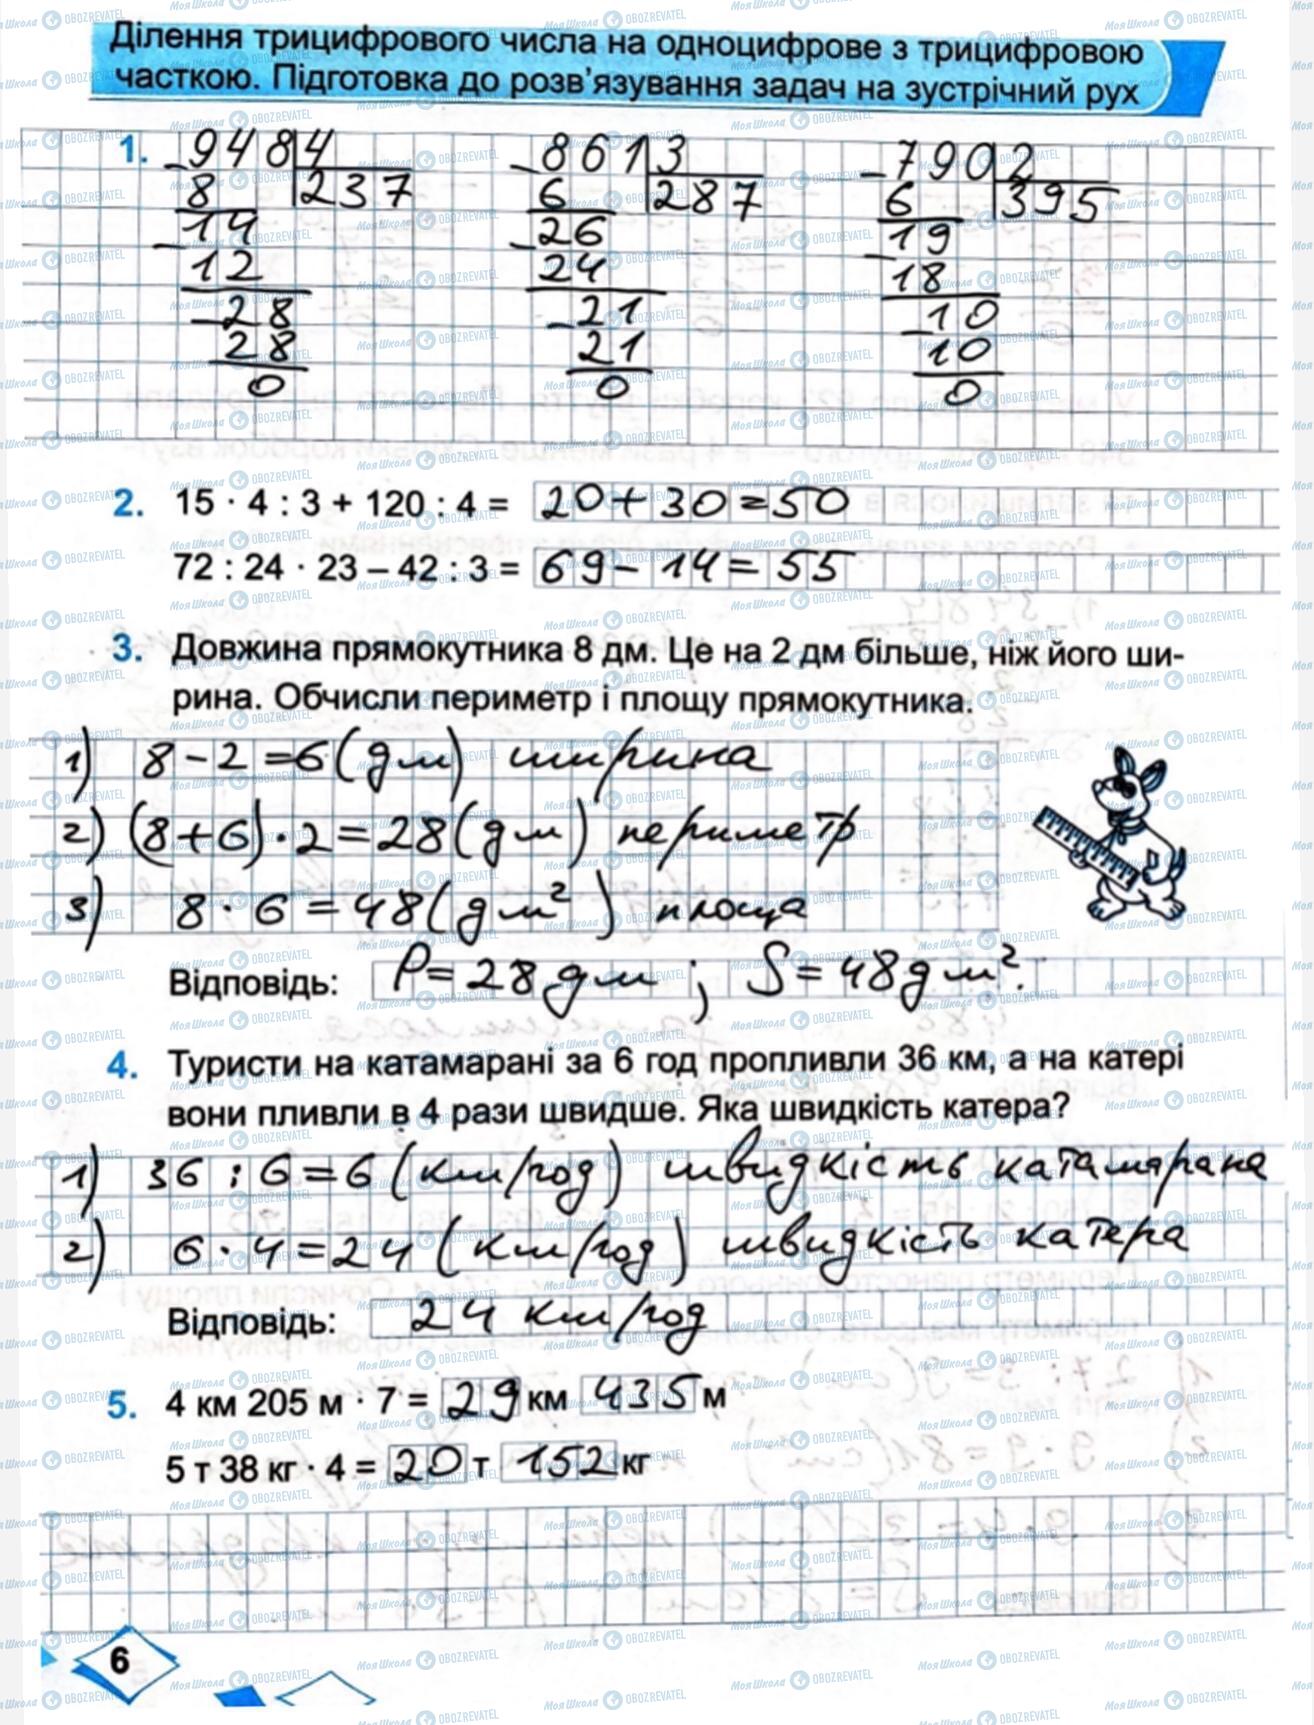 Ділення трицифрового числа на одноцифрове з трицифровою
часткою. Підготовка до розв'язування задач на зустрічний рух
1. 948 4   861 3   790 2
8 237   6 287   6 395
14   26   19
12   24   18
28   21   10
28   21   10
0   0   0
2. 15 · 4 : 3 + 120 : 4 = 20+30=50
72 : 24 · 23 – 42 : 3 = 69 – 14 = 55
3. Довжина прямокутника 8 дм. Це на 2 дм більше, ніж його ши-
рина. Обчисли периметр і площу прямокутника.
1) 8 – 2 = 6 (дм) ширина
2) (8+6) · 2 = 28 (дм) периметр
3) 8 · 6 = 48 (дм²) площа
Відповідь: P = 28 дм ; S = 48 дм².
4. Туристи на катамарані за 6 год пропливли 36 км, а на катері
вони пливли в 4 рази швидше. Яка швидкість катера?
1) 36 : 6 = 6 (км/год) швидкість катамарана
2) 6 · 4 = 24 (км/год) швидкість катера
Відповідь: 24 км/год
5. 4 км 205 м · 7 = 29 км 435 м
5 т 38 кг · 4 = 20 т 152 кг
6